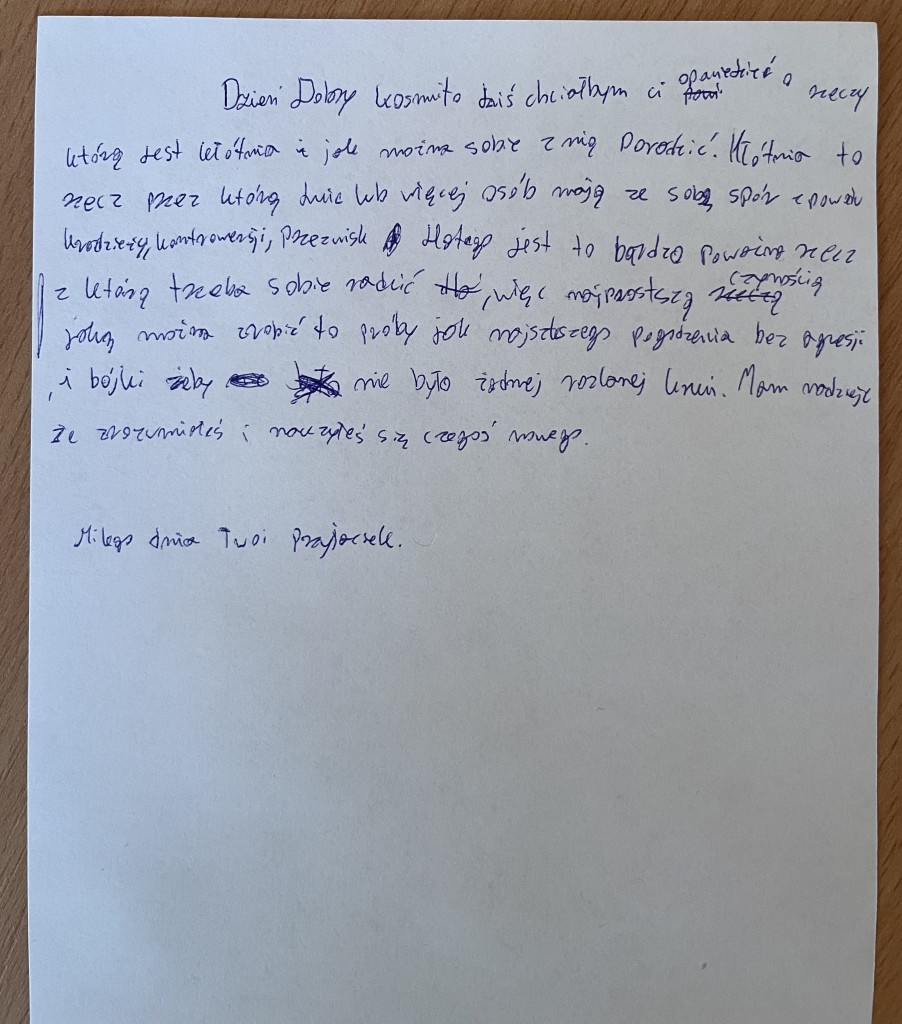 Dzień Dobry kosmito dziś chciałbym ci opowiedzieć o rzeczy
którą jest kłótnia i jak można sobie z nią Poradzić. Kłótnia to
rzecz przez którą dwie lub więcej osób mają ze sobą spór z powodu
kradzieży, kontrowersji, Przezwisk dlatego jest to bardzo poważna rzecz
z którą trzeba sobie radzić, więc najprostszą czynnością
jaką można zrobić to próby jak najszybszego pogodzenia bez agresji
i bójki żeby nie było żadnej rozlanej krwi. Mam nadzieje
że zrozumiałeś i nauczyłeś się czegoś nowego.
Miłego dnia Twoi przyjaciele.